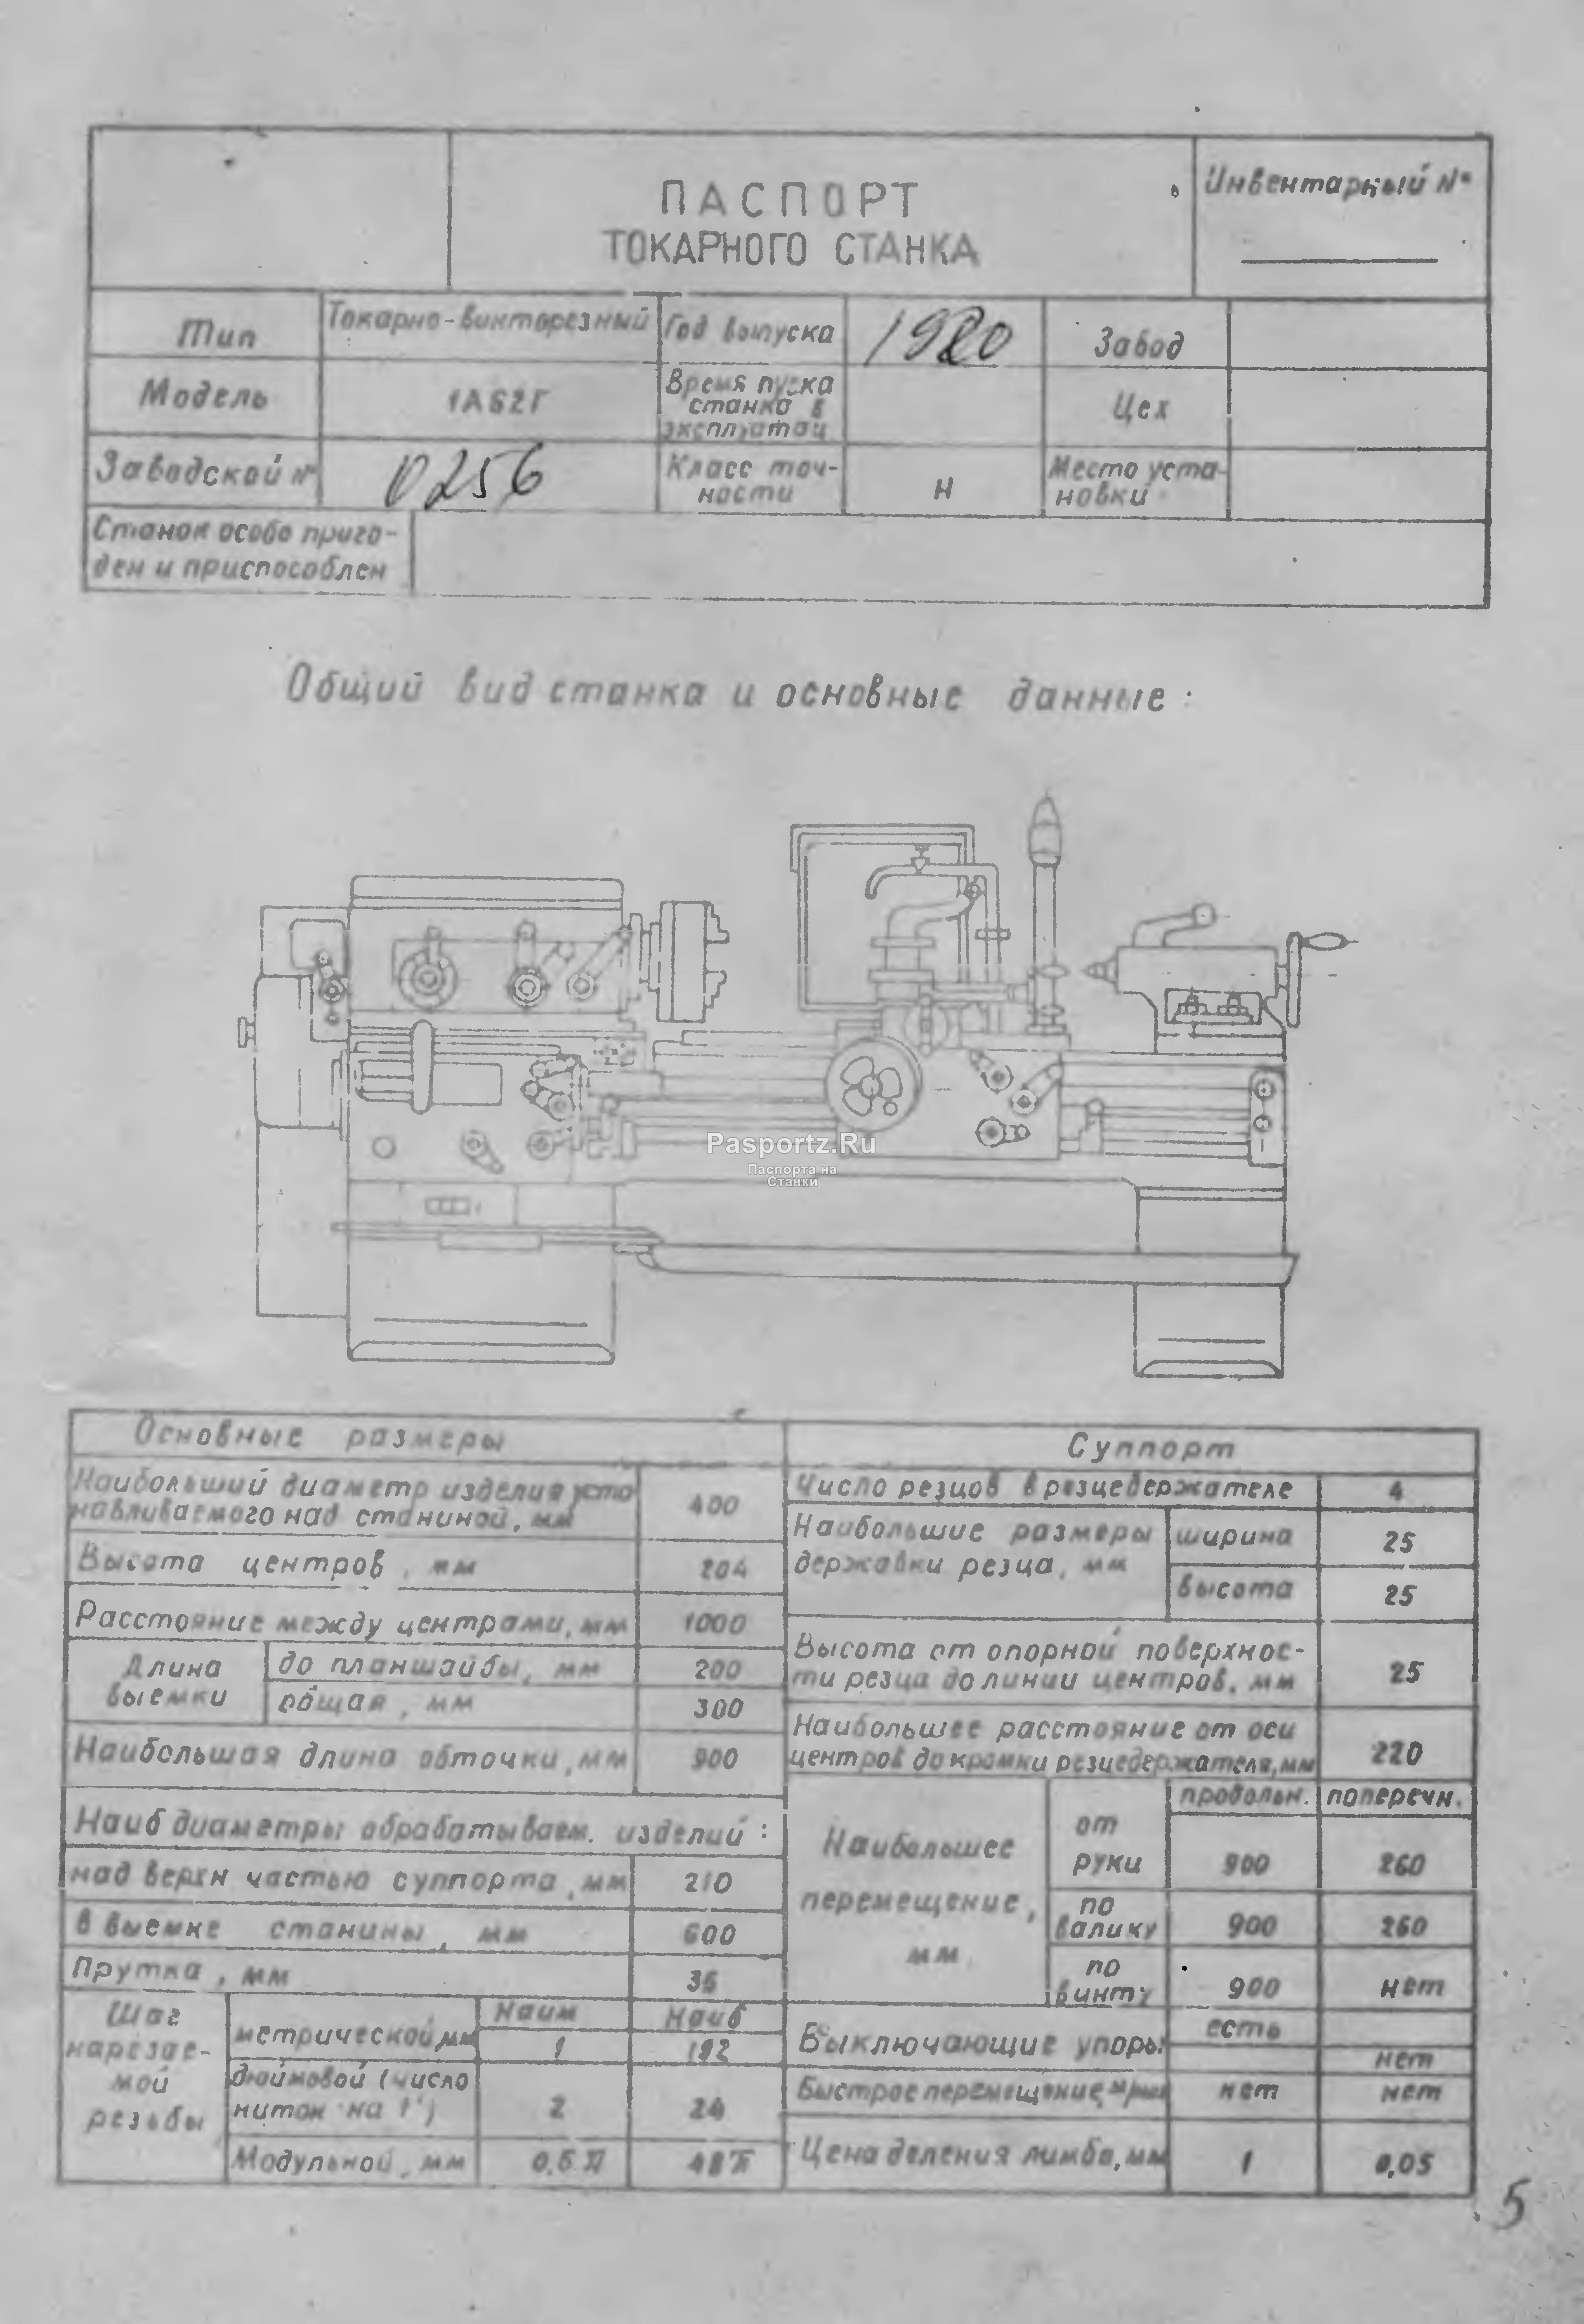 ПАСПОРТ
ТОКАРНОГО СТАНКА
Инвентарный №
Тип
Токарно-винторезный
Год выпуска
1980
Завод
Модель
1А62Г
Время пуска
станка в
эксплуатац
Цех
Заводской №
0256
Класс точ-
ности
Н
Место уста-
новки
Станок особо приго-
ден и приспособлен
Общий вид станка и основные данные:
Pasportz.Ru
Паспорта на
Станки
Основные размеры
Наибольший диаметр изделия уста
навливаемого над станиной, мм
400
Высота центров, мм
204
Расстояние между центрами, мм
1000
Длина
выемки
до планшайбы, мм
200
общая, мм
300
Наибольшая длина обточки, мм
900
Наиб диаметры обрабатываем. изделий:
над верхн частью суппорта, мм
210
в выемке станины, мм
600
Прутка, мм
36
Шаг
нарезае-
мой
резьбы
Наим
Наиб
метрической, мм
1
192
дюймовой (число
ниток на 1")
2
24
Модульной, мм
0,5 π
48 π
Суппорт
Число резцов в резцедержателе
4
Наибольшие размеры
державки резца, мм
ширина
25
высота
25
Высота от опорной поверхнос-
ти резца до линии центров, мм
25
Наибольшее расстояние от оси
центров до кромки резцедержателя, мм
220
Наибольшее
перемещение,
мм
продольн.
поперечн.
от
руки
900
260
по
валику
900
260
по
винту
900
нет
Выключающие упоры
есть
нет
Быстрое перемещение
нет
нет
Цена деления лимба, мм
1
0,05
5